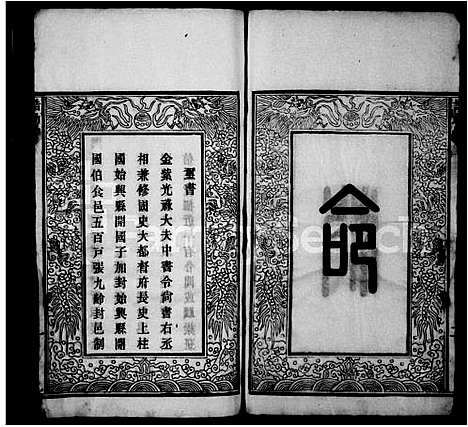 命
璽書
金紫光祿大夫中書令尚書右丞
相兼修國史大都督府長史上柱
國始興縣開國子加封始興縣開
國伯食邑五百戶張九齡封邑制